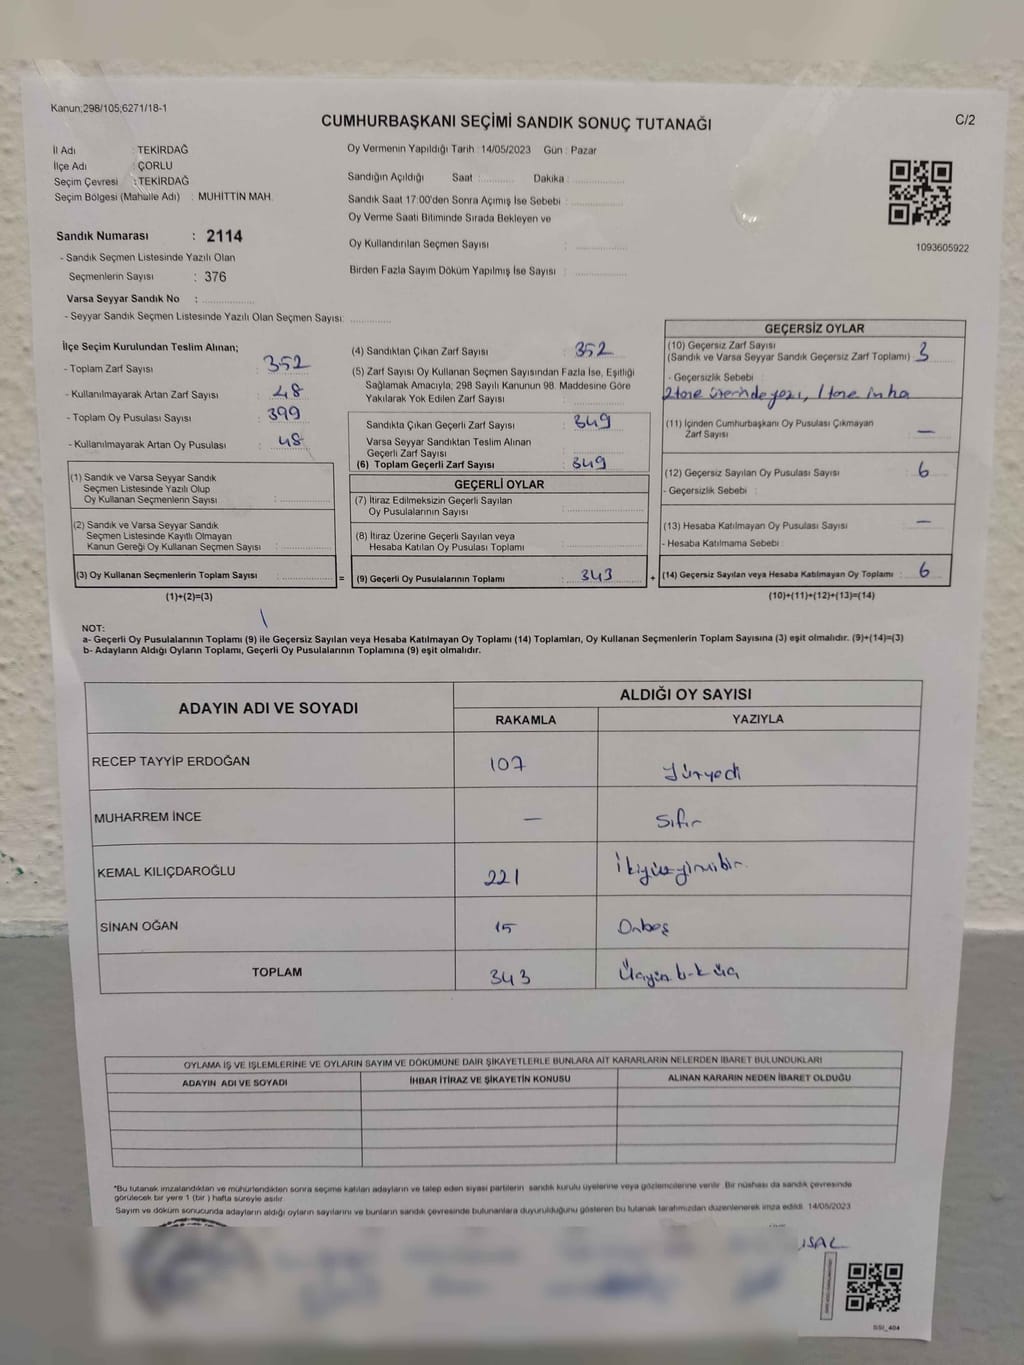 Kanun;298/105,6271/18-1
CUMHURBAŞKANI SEÇİMİ SANDIK SONUÇ TUTANAĞI
C/2
İl Adı : TEKİRDAĞ
İlçe Adı : ÇORLU
Seçim Çevresi : TEKİRDAĞ
Seçim Bölgesi (Mahalle Adı) : MUHİTTİN MAH.
Sandık Numarası : 2114
- Sandık Seçmen Listesinde Yazılı Olan
Seçmenlerin Sayısı : 376
Varsa Seyyar Sandık No :
- Seyyar Sandık Seçmen Listesinde Yazılı Olan Seçmen Sayısı:
Oy Vermenin Yapıldığı Tarih : 14/05/2023 Gün : Pazar
Sandığın Açıldığı Saat : Dakika :
Sandık Saat 17:00'den Sonra Açımış İse Sebebi :
Oy Verme Saati Bitiminde Sırada Bekleyen ve
Oy Kullandırılan Seçmen Sayısı :
Birden Fazla Sayım Döküm Yapılmış İse Sayısı :
1093605922
İlçe Seçim Kurulundan Teslim Alınan;
- Toplam Zarf Sayısı : 352
- Kullanılmayarak Artan Zarf Sayısı : 48
- Toplam Oy Pusulası Sayısı : 399
- Kullanılmayarak Artan Oy Pusulası : 48
(1) Sandık ve Varsa Seyyar Sandık
Seçmen Listesinde Yazılı Olup
Oy Kullanan Seçmenlerin Sayısı :
(2) Sandık ve Varsa Seyyar Sandık
Seçmen Listesinde Kayıtlı Olmayan
Kanun Gereği Oy Kullanan Seçmen Sayısı :
(3) Oy Kullanan Seçmenlerin Toplam Sayısı :
(1)+(2)=(3)
(4) Sandıktan Çıkan Zarf Sayısı : 352
(5) Zarf Sayısı Oy Kullanan Seçmen Sayısından Fazla İse, Eşitliği
Sağlamak Amacıyla, 298 Sayılı Kanunun 98. Maddesine Göre
Yakılarak Yok Edilen Zarf Sayısı :
Sandıkta Çıkan Geçerli Zarf Sayısı : 349
Varsa Seyyar Sandıktan Teslim Alınan
Geçerli Zarf Sayısı :
(6) Toplam Geçerli Zarf Sayısı : 349
GEÇERLİ OYLAR
(7) İtiraz Edilmeksizin Geçerli Sayılan
Oy Pusulalarının Sayısı :
(8) İtiraz Üzerine Geçerli Sayılan veya
Hesaba Katılan Oy Pusulası Toplamı :
= (9) Geçerli Oy Pusulalarının Toplamı : 343 +
GEÇERSİZ OYLAR
(10) Geçersiz Zarf Sayısı
(Sandık ve Varsa Seyyar Sandık Geçersiz Zarf Toplamı) : 3
- Geçersizlik Sebebi :
2 tane üzerinde yazı, 1 tane imha
(11) İçinden Cumhurbaşkanı Oy Pusulası Çıkmayan
Zarf Sayısı : —
(12) Geçersiz Sayılan Oy Pusulası Sayısı : 6
- Geçersizlik Sebebi :
(13) Hesaba Katılmayan Oy Pusulası Sayısı : —
- Hesaba Katılmama Sebebi :
(14) Geçersiz Sayılan veya Hesaba Katılmayan Oy Toplamı : 6
(10)+(11)+(12)+(13)=(14)
NOT:
a- Geçerli Oy Pusulalarının Toplamı (9) ile Geçersiz Sayılan veya Hesaba Katılmayan Oy Toplamı (14) Toplamları, Oy Kullanan Seçmenlerin Toplam Sayısına (3) eşit olmalıdır. (9)+(14)=(3)
b- Adayların Aldığı Oyların Toplamı, Geçerli Oy Pusulalarının Toplamına (9) eşit olmalıdır.
ADAYIN ADI VE SOYADI
ALDIĞI OY SAYISI
RAKAMLA YAZIYLA
RECEP TAYYİP ERDOĞAN 107 Yüzyedi
MUHARREM İNCE — Sıfır
KEMAL KILIÇDAROĞLU 221 İkiyüzyirmibir
SİNAN OĞAN 15 Onbeş
TOPLAM 343 Üçyüzkırküç
OYLAMA İŞ VE İŞLEMLERİNE VE OYLARIN SAYIM VE DÖKÜMÜNE DAİR ŞİKAYETLERLE BUNLARA AİT KARARLARIN NELERDEN İBARET BULUNDUKLARI
ADAYIN ADI VE SOYADI İHBAR İTİRAZ VE ŞİKAYETİN KONUSU ALINAN KARARIN NEDEN İBARET OLDUĞU
*Bu tutanak imzalandıktan ve mühürlendikten sonra seçime katılan adayların ve talep eden siyasi partilerin sandık kurulu üyelerine veya gözlemcilerine verilir. Bir nüshası da sandık çevresinde
görülecek bir yere 1 (bir) hafta süreyle asılır.
Sayım ve döküm sonucunda adayların aldığı oyların sayılarını ve bunların sandık çevresinde bulunanlara duyurulduğunu gösteren bu tutanak tarafımızdan düzenlenerek imza edildi. 14/05/2023
GSI_404